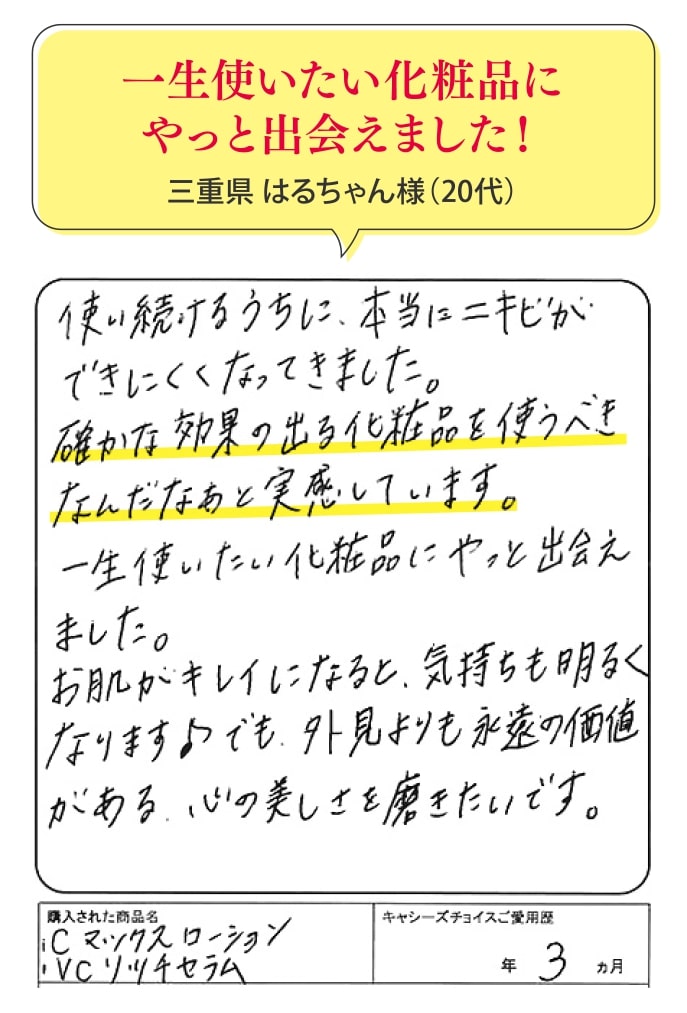 一生使いたい化粧品に
やっと出会えました！
三重県 はるちゃん様（20代）
使い続けるうちに、本当にニキビが
できにくくなってきました。
確かな効果の出る化粧品を使うべき
なんだなぁと実感しています。
一生使いたい化粧品にやっと出会え
ました。
お肌がキレイになると、気持ちも明るく
なります♪でも、外見よりも永遠の価値
がある、心の美しさを磨きたいです。
購入された商品名
・Cマックスローション
・VCリッチセラム
キャシーズチョイスご愛用歴
年 3 ヵ月